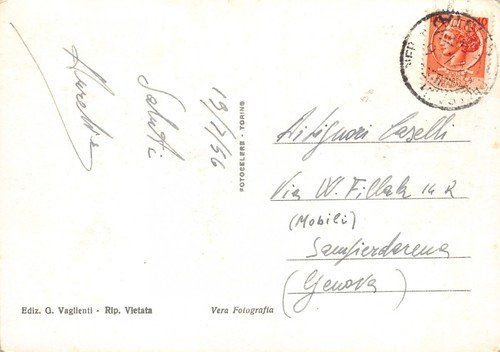 19/7/56
Saluti
FOTOCELERE - TORINO
Ai Signori Caselli
Via W. Fillak 14 R
(Mobili)
Sampierdarena
(Genova)
Ediz. G. Vaglienti - Rip. Vietata
Vera Fotografia